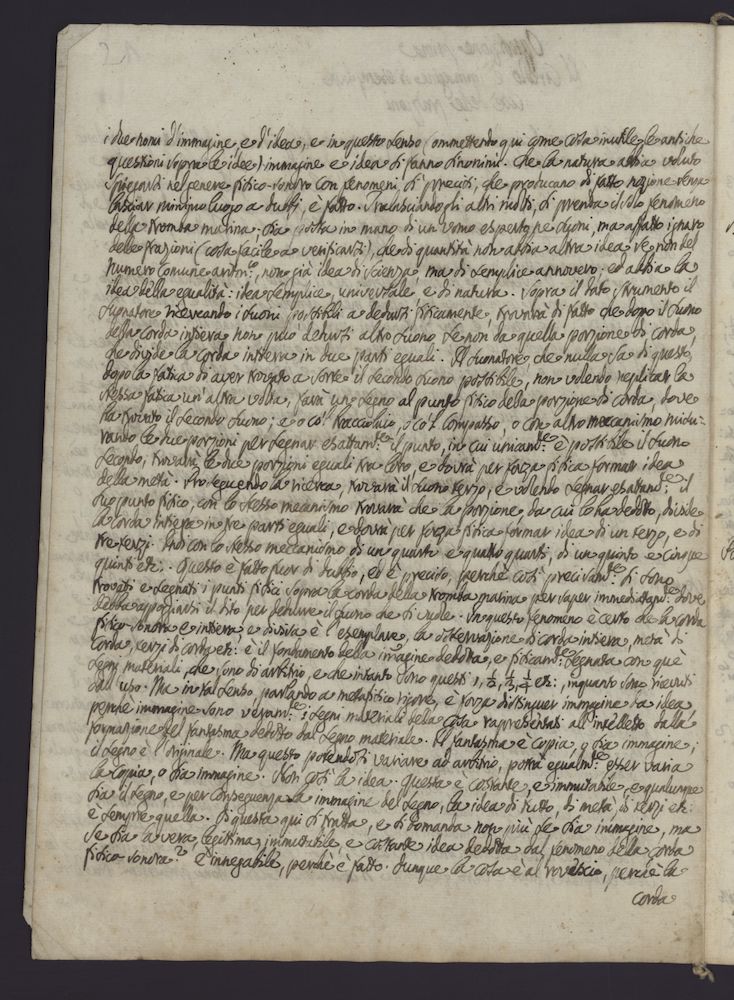 i due nomi d'immagine, e d'idea, e in questo senso (ommettendo qui come cosa inutile le antiche
questioni sopra le idee) immagine e idea si fanno sinonimi. Che la natura abbia voluto
spiegarsi nel genere fisico-sonoro con fenomeni, di precisi, che producano di fatto nozione senza
lasciar minimo luogo a dubbj, è fatto. Tralasciandogli altri molti, si prenda il solo fenomeno
della tromba marina. Sia posta in mano di un uomo esperto ne suoni, ma affatto ignaro
delle frazioni (cosa facile a verificarsi), che di quantità non abbia altra idea se non del
numero comune aritm:º, non già idea di scienza, ma di semplice annovero, ed abbia la
idea della egualità: idea semplice, universale, e di natura. Sopra il dato strumento il
suonatore ricercando i suoni possibili a dedursi fisicamente, troverà di fatto che dopo il suono
della corda intiera non può dedursi altro suono se non da quella porzione di corda,
che divide la corda intiera in due parti eguali. Il suonatore, che nulla sa di questo,
dopo la fatica di aver trovato a sorte il secondo suono possibile, non volendo replicar la
stessa fatica un'altra volta, farà un segno al punto fisico della porzione di corda, dove
ha trovato il secondo suono; e o col traccolaio, o col compasso, o con altro mecanismo misu-
rando le due porzioni per segnar esattam:te il punto, in cui unicam:te è possibile il suono
secondo, troverà le due porzioni eguali tra loro, e dovrà per forza fisica formar idea
della metà. Proseguendo la ricerca, troverà il suono terzo, e volendo segnar esattam:te il
suo punto fisico, con lo stesso mecanismo troverà che la porzione da cui lo ha dedotto, divide
la corda intiera in tre parti eguali, e dovrà per forza fisica formar idea di un terzo, e di
tre terzi. Indi con lo stesso meccanismo di un quarto e quattro quarti, di un quinto e cinque
quinti etc. Questo è fatto fuor di dubbio, ed è preciso, perchè così precisam:te si sono
trovati e segnati i punti fisici sopra la corda della tromba marina per saper immediatam:te dove
debba appoggiarsi il dito per dedurre il suono che si vuole. In questo fenomeno è certo che la corda
fisico-sonora e intiera, e divisa è l'esemplare, la osservazione di corda intiera, metà di
corda, terzi di corda etc: è il fondamento della immagine dedotta, e fisicam:te segnata con que
segni materiali, che sono di arbitrio, e che intanto sono questi 1, ½, ⅓, ¼ etc:, inquanto sono ricevuti
dall'uso. Ma in tal senso, parlando a metafisico rigore, è forza distinguer immagine da idea,
perchè immagine sono veram:te i segni materiali della cosa rappresentati all'intelletto dalla
formazione del fantasma dedotto dal segno materiale. Il fantasma è copia, o sia immagine;
il segno è l'originale. Ma questo potendosi variare ad arbitrio, potrà egualm:te esser varia
la copia, o sia immagine. Non così la idea. Questa è costante, e immutabile, e qualunque
sia il segno, e per conseguenza la immagine del segno, la idea di tutto, di metà, di terzi etc:
è sempre quella. Di questa qui si tratta, e si domanda non più se sia immagine, ma
se sia la vera, legittima, immutabile, e costante idea dedotta dal fenomeno della corda
fisico-sonora? È innegabile, perchè è fatto. Dunque la cosa è al rovescio, perchè la
corda